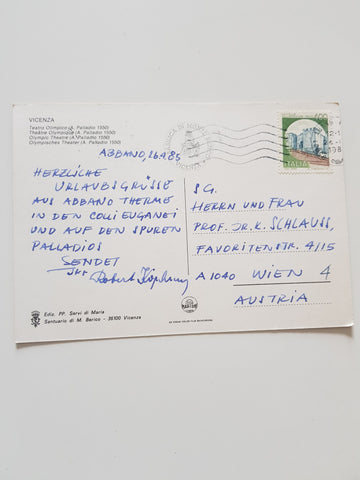 VICENZA
Teatro Olimpico (A. Palladio 1550)
Théâtre Olympique (A. Palladio 1550)
Olympic Theatre (A. Palladio 1550)
Olympisches Theater (A. Palladio 1550)
ABBANO, 26.9.85
HERZLICHE
URLAUBSGRÜSSE
AUS ABBANO THERME
IN DEN COLLI EUGANEI
UND AUF DEN SPUREN
PALLADIOS
SENDET
IHR
Robert
S.G.
HERRN UND FRAU
PROF. DR. K. SCHLAUSS,
FAVORITENSTR. 4/15
A 1040 WIEN 4
AUSTRIA
ITALIA
Ediz. PP. Servi di Maria
Santuario di M. Berico - 36100 Vicenza